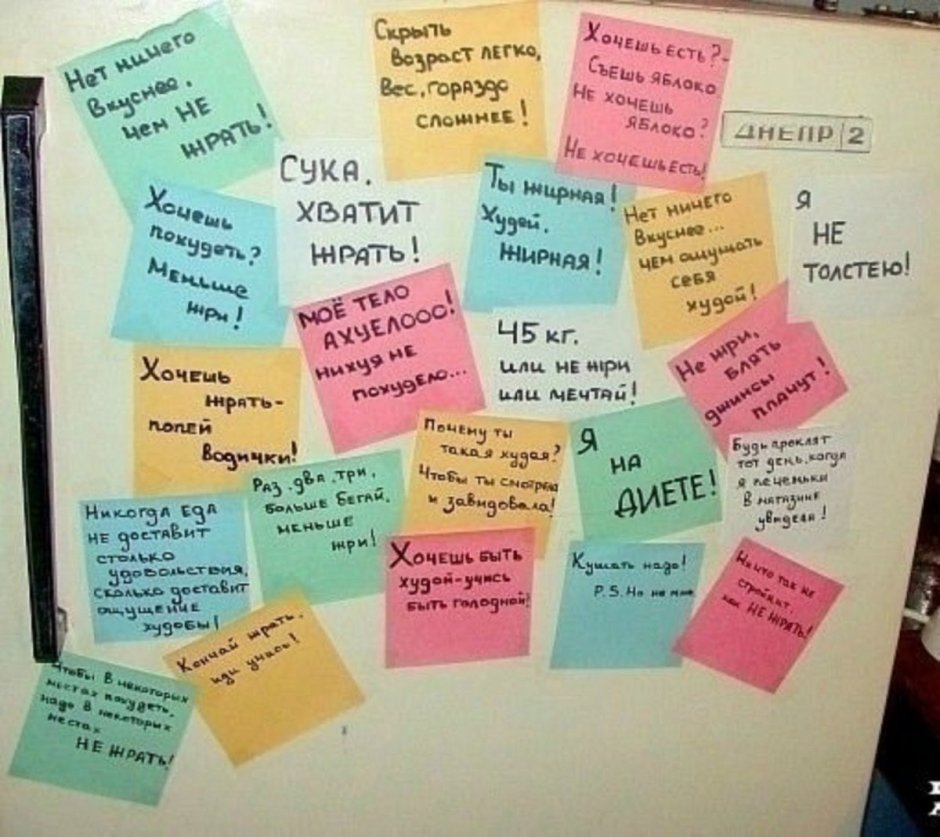 Нет ничего
вкуснее,
чем НЕ
ЖРАТЬ!
Скрыть
возраст легко,
Вес, гораздо
сложнее!
Хочешь есть?-
Съешь яблоко
Не хочешь
яблоко?
Не хочешь есть!
ДНЕПР 2
СУКА.
ХВАТИТ
ЖРАТЬ!
Ты жирная!
Худей.
Жирная!
Нет ничего
вкуснее...
чем ощущать
себя
худой!
Я
НЕ
ТОЛСТЕЮ!
Хочешь
похудеть?
Меньше
жри!
МОЁ ТЕЛО
АХУЕЛООО!
нихуя не
похудело...
45 кг.
или не жри
или мечтай!
Не жри,
блять
джинсы
плачут!
Хочешь
жрать-
попей
Водички!
Почему ты
такая худая?
Чтобы ты смотрела
и завидовала!
Я
НА
ДИЕТЕ!
Будь проклят
тот день, когда
я печеньки
в магазине
увидела!
Никогда еда
не доставит
столько
удовольствия,
сколько доставит
ощущение
худобы!
Раз, два, три,
больше бегай,
меньше
жри!
Хочешь быть
худой-учись
быть голодной!
Кушать надо!
P.S. Но не мне
Ничто так не
стройнит,
как НЕ ЖРАТЬ!
Чтобы в некоторых
местах похудеть,
надо в некоторых
местах
НЕ ЖРАТЬ!
Кончай жрать,
иди учись!